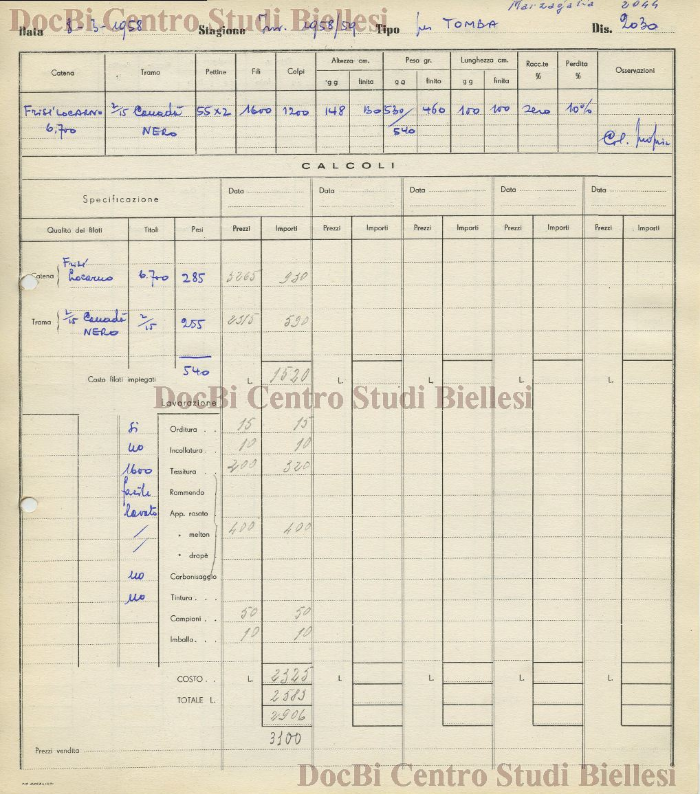 DocBi Centro Studi Biellesi
Marzagalia 2044
Data 8-3-1958 Stagione Inv. 1958/59 Tipo per TOMBA Dis. 2030
Catena Trama Pettine Fili Colpi Altezza cm. Peso gr. Lunghezza cm. Racc.te % Perdita % Osservazioni
gg finita gg finito gg finita
FRISI' LOCARNO 2/15 Canadà 55x2 1600 1200 148 130 530/540 460 100 100 zero 10%
6.700 NERO Col. proprio
CALCOLI
Specificazione Data Data Data Data Data
Qualità dei filati Titoli Pesi Prezzi Importi Prezzi Importi Prezzi Importi Prezzi Importi Prezzi Importi
Frisi'
Catena Locarno 6.700 285 3265 930
Trama 2/15 Canadà 2/15 255 2315 590
NERO
540
Costo filati impiegati L. 1520 L. L. L. L.
DocBi Centro Studi Biellesi
Lavorazione
si Orditura . . 15 15
no Incollatura . 10 10
1600 Tessitura . . 400 320
facile Rammendo
lavato App. rasato
/ " melton 400 400
/ " drapè
no Carbonisaggio
no Tintura . . .
Campioni . . 50 50
Imballo . . . 10 10
COSTO . . L. 2325 L. L. L. L.
TOTALE L. 2583
2906
3100
Prezzi vendita
DocBi Centro Studi Biellesi